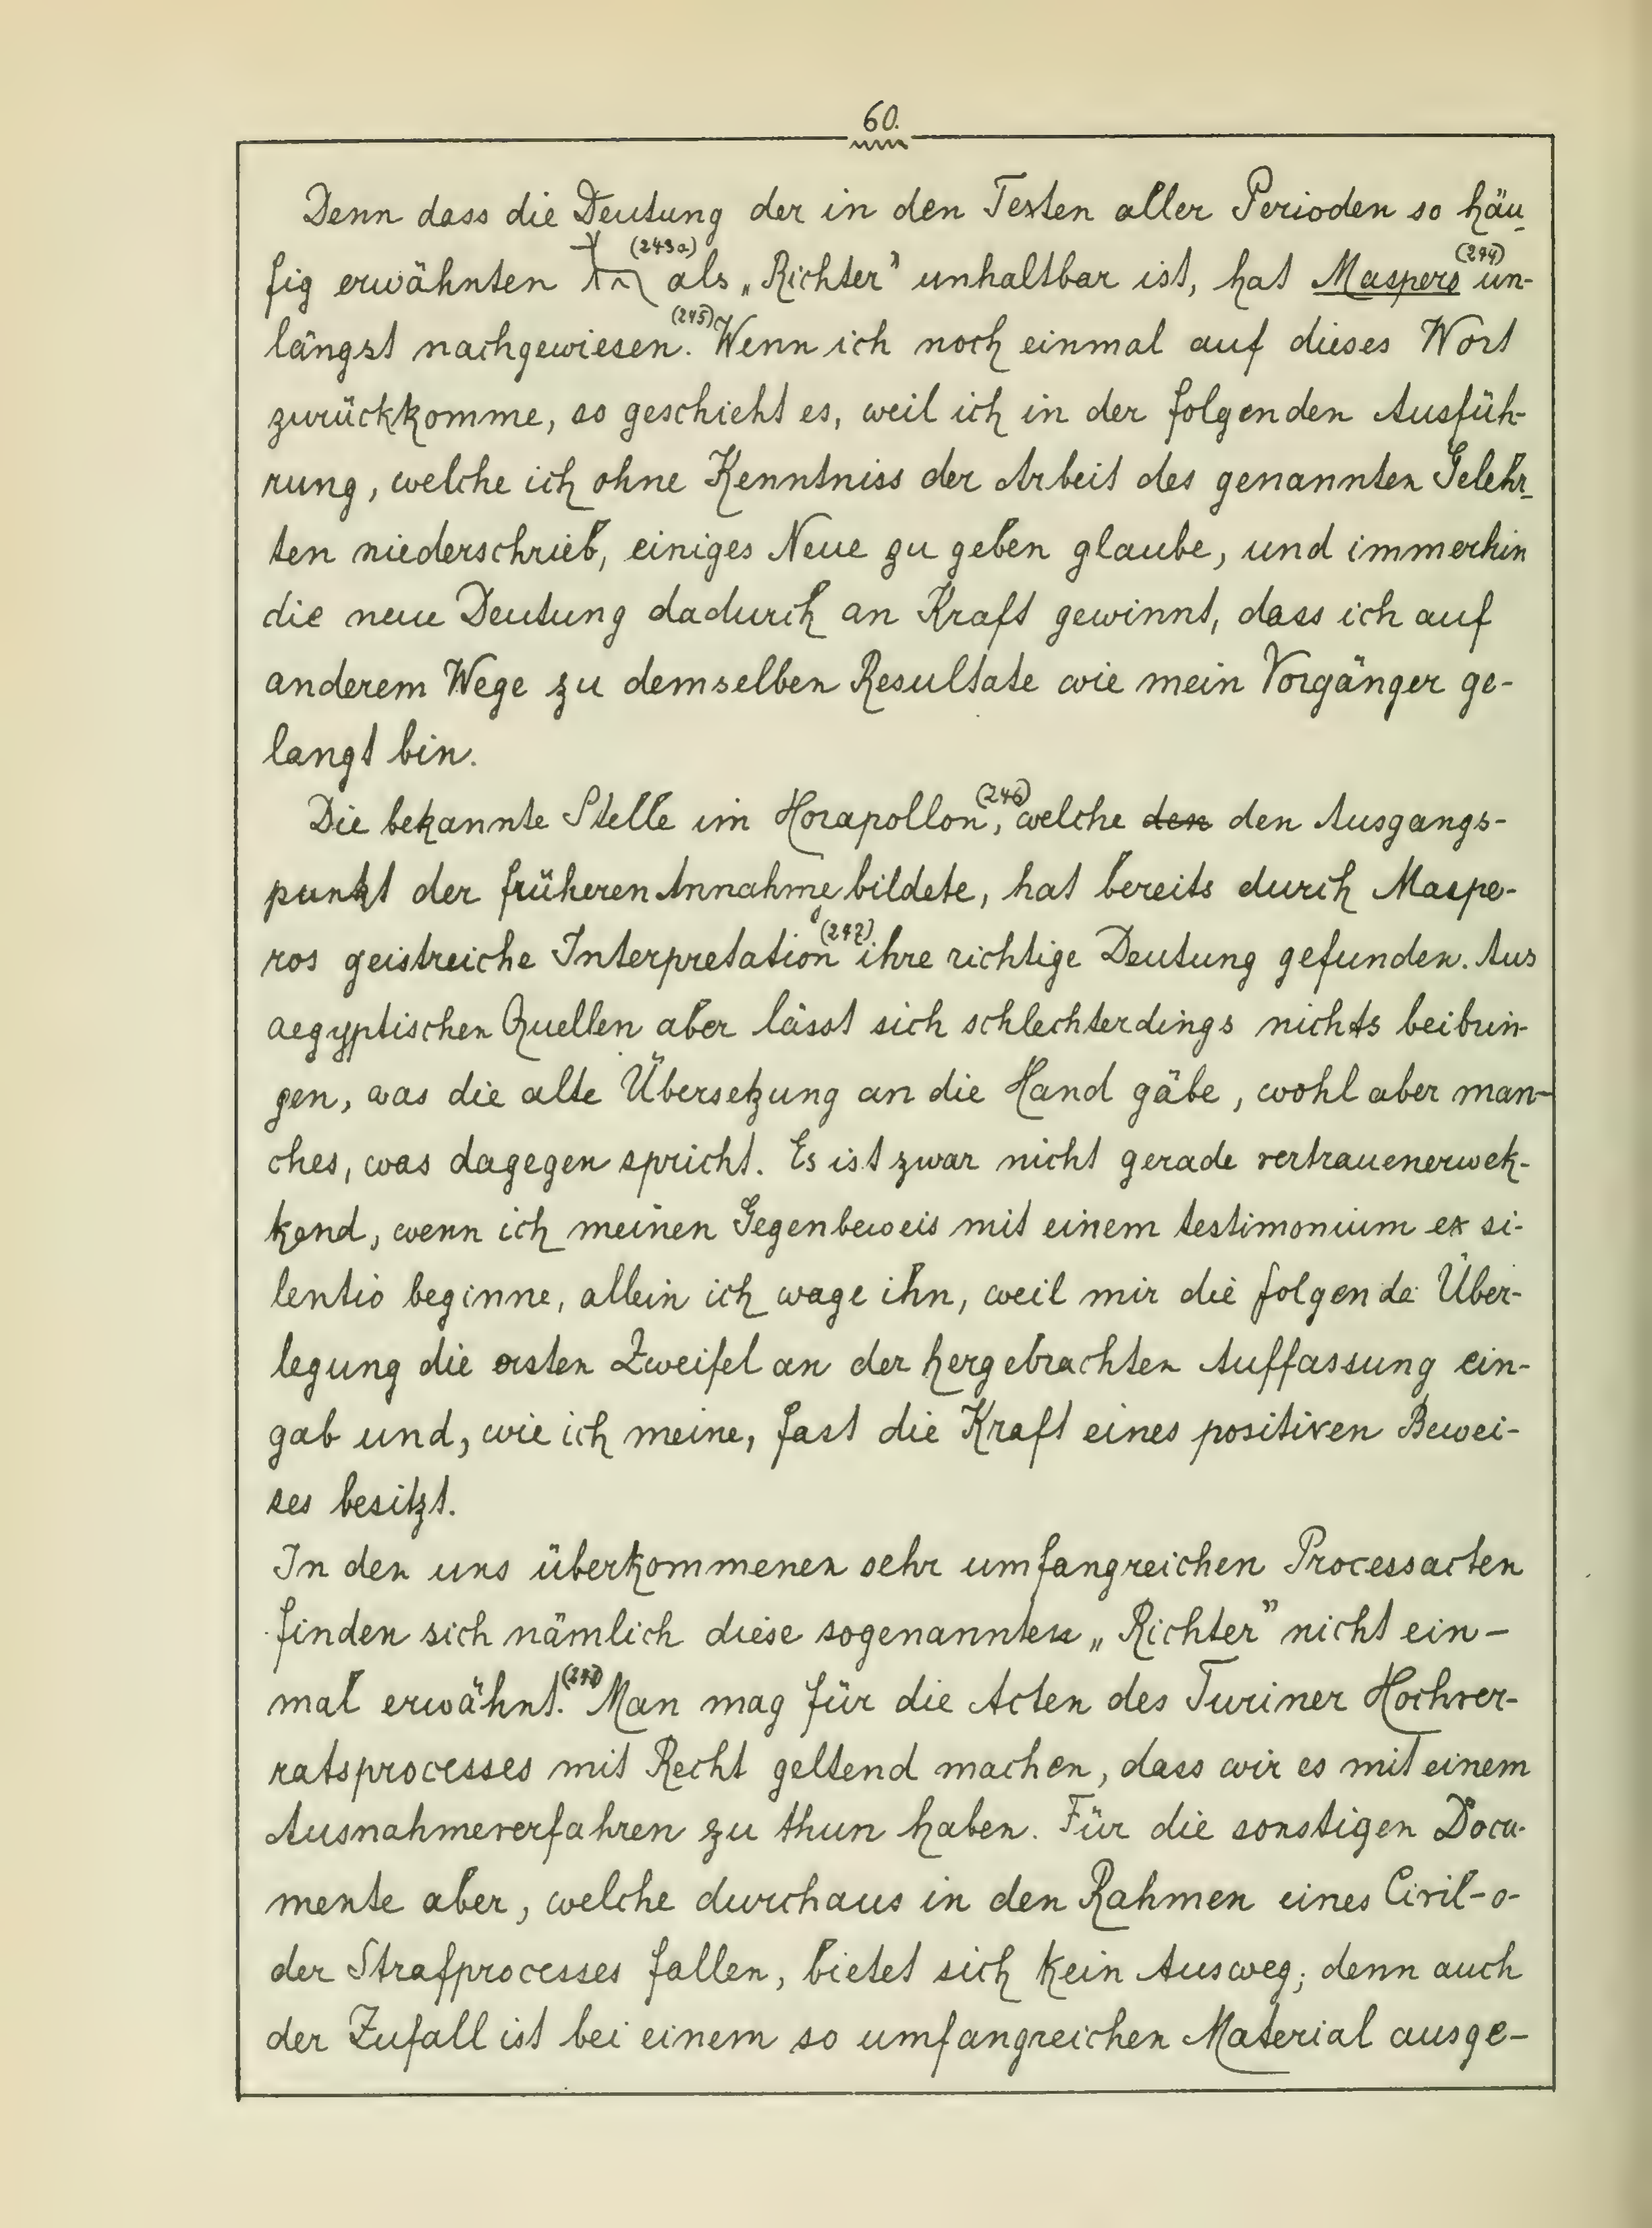 60.
Denn dass die Deutung der in den Texten aller Perioden so häu-
fig erwähnten (243a) als „Richter” unhaltbar ist, hat Maspero (244) un-
längst nachgewiesen. (245) Wenn ich noch einmal auf dieses Wort
zurückkomme, so geschieht es, weil ich in der folgenden Ausfüh-
rung, welche ich ohne Kenntniss der Arbeit des genannten Gelehr-
ten niederschrieb, einiges Neue zu geben glaube, und immerhin
die neue Deutung dadurch an Kraft gewinnt, dass ich auf
anderem Wege zu demselben Resultate wie mein Vorgänger ge-
langt bin.
Die bekannte Stelle im Horapollon, (246) welche den den Ausgangs-
punkt der früheren Annahme bildete, hat bereits durch Maspe-
ros geistreiche Interpretation (247) ihre richtige Deutung gefunden. Aus
aegyptischen Quellen aber lässt sich schlechterdings nichts beibrin-
gen, was die alte Übersetzung an die Hand gäbe, wohl aber man-
ches, was dagegen spricht. Es ist zwar nicht gerade vertrauenerwek-
kend, wenn ich meinen Gegenbeweis mit einem testimonium ex si-
lentio beginne, allein ich wage ihn, weil mir die folgende Über-
legung die ersten Zweifel an der hergebrachten Auffassung ein-
gab und, wie ich meine, fast die Kraft eines positiven Bewei-
ses besitzt.
In den uns überkommenen sehr umfangreichen Processacten
finden sich nämlich diese sogenannten „Richter” nicht ein-
mal erwähnt. Man mag für die Acten des Turiner Hochver-
ratsprocesses mit Recht geltend machen, dass wir es mit einem
Ausnahmeverfahren zu thun haben. Für die sonstigen Docu-
mente aber, welche durchaus in den Rahmen eines Civil-o-
der Strafprocesses fallen, bietet sich kein Ausweg; denn auch
der Zufall ist bei einem so umfangreichen Material ausge-